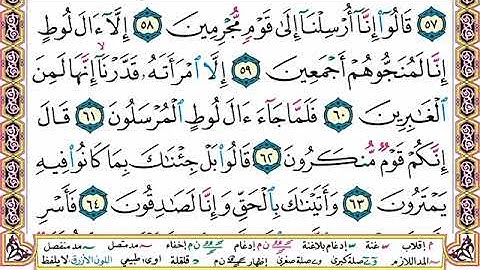 ٥٧ قَالُوٓا۟ إِنَّآ أُرْسِلْنَآ إِلَىٰ قَوْمٍ مُّجْرِمِينَ ٥٨ إِلَّآ ءَالَ لُوطٍ
إِنَّا لَمُنَجُّوهُمْ أَجْمَعِينَ ٥٩ إِلَّا ٱمْرَأَتَهُۥ قَدَّرْنَآ إِنَّهَا لَمِنَ
ٱلْغَـٰبِرِينَ ٦٠ فَلَمَّا جَآءَ ءَالَ لُوطٍ ٱلْمُرْسَلُونَ ٦١ قَالَ
إِنَّكُمْ قَوْمٌ مُّنكَرُونَ ٦٢ قَالُوا۟ بَلْ جِئْنَـٰكَ بِمَا كَانُوا۟ فِيهِ
يَمْتَرُونَ ٦٣ وَأَتَيْنَـٰكَ بِٱلْحَقِّ وَإِنَّا لَصَـٰدِقُونَ ٦٤ فَأَسْرِ
م إقلاب غنة إدغام بلاغنة ن م إدغام ن م إخفاء مد متصل مد منفصل
المد اللازم صلة كبرى صلة صغرى إظهار ن م قلقلة اوى طبيعي اللون الأزرق لا يلفظ